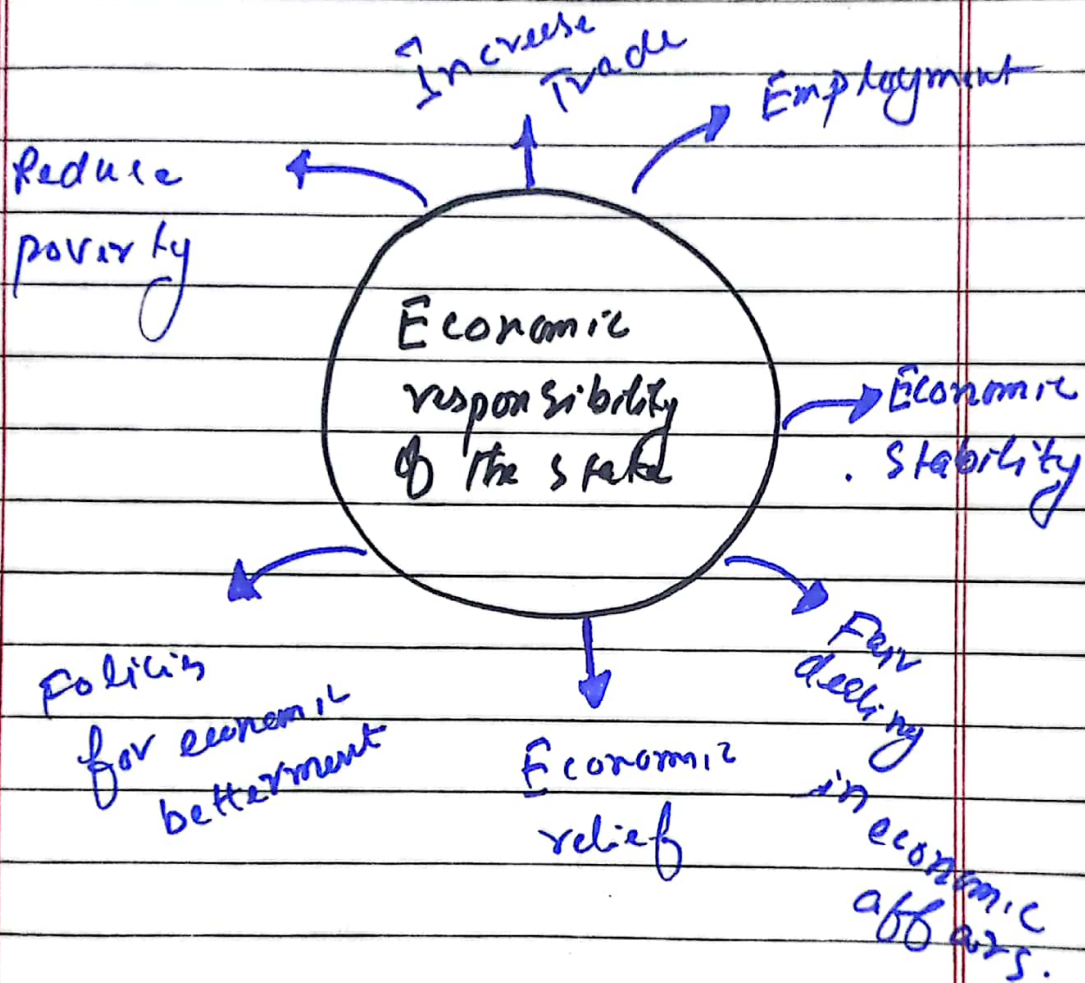 Increase
Trade
Employment
Reduce
poverty
Economic
responsibility
of the state
Economic
stability
Fair
dealing
in economic
affairs.
Economic
relief
Policies
for economic
betterment